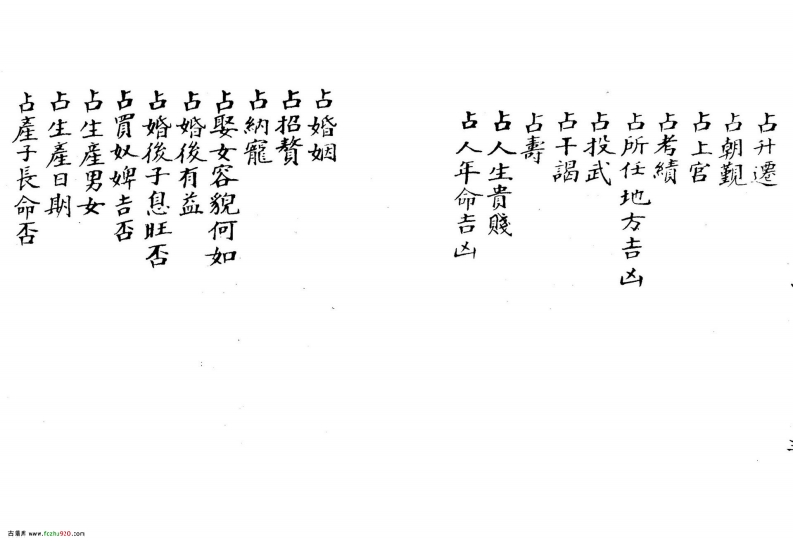 占升遷
占朝覲
占上官
占考績
占所任地方吉凶
占投武
占干謁
占壽
占人生貴賤
占人年命吉凶
占婚姻
占招贅
占納寵
占娶女容貌何如
占婚後有益
占婚後子息旺否
占買奴婢吉否
占生產男女
占生產日期
占產子長命否
www.fczhu920.com